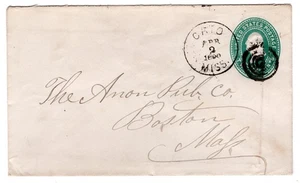 OHIO
APR
2
MISS.
UNITED STATES POSTAGE
The Anon Pub. Co.
Boston
Mass